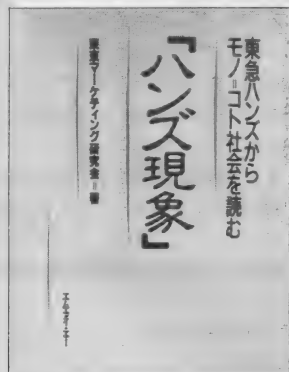 東急ハンズから
モノ=コト社会を読む
『ハンズ現象』
東京マーケティング研究会=著
エムティ・エー